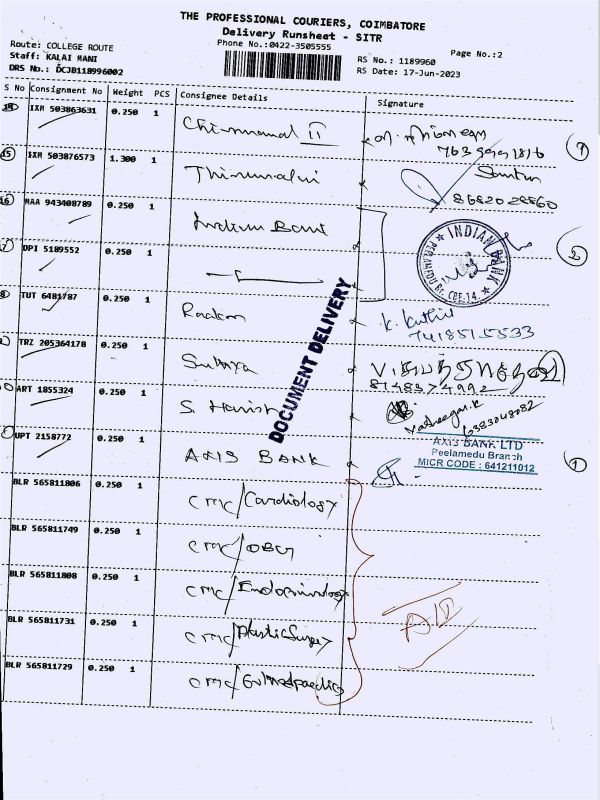 THE PROFESSIONAL COURIERS, COIMBATORE
Delivery Runsheet - SITR
Phone No.:0422-3505555
Page No.:2
Route: COLLEGE ROUTE
Staff: KALAI MANI
DRS No.: DCJB118996002
RS No.: 1189960
RS Date: 17-Jun-2023
S No Consignment No Weight PCS Consignee Details Signature
14 IXM 503863631 0.250 1
15 IXM 503876573 1.300 1
8682028860
16 MAA 943408789 0.250 1 Indian Bank
INDIAN BANK
PEELAMEDU Br. CBE-14.
2
7 DPI 5189552 0.250 1
8 TUT 6481787 0.250 1
K. Kathir
7418515533
DOCUMENT DELIVERY
TRZ 205364178 0.250 1
8148374992
0 ART 1855324 0.250 1 S. Harish
6383048082
UPT 2158772 0.250 1 AXIS BANK
AXIS BANK LTD
Peelamedu Branch
MICR CODE : 641211012
1
BLR 565811806 0.250 1 CMC/Cardiology
BLR 565811749 0.250 1 CMC/OBG
BLR 565811808 0.250 1 CMC/Endocrinology
BLR 565811731 0.250 1 CMC/Plastic Surgery
BLR 565811729 0.250 1 CMC/